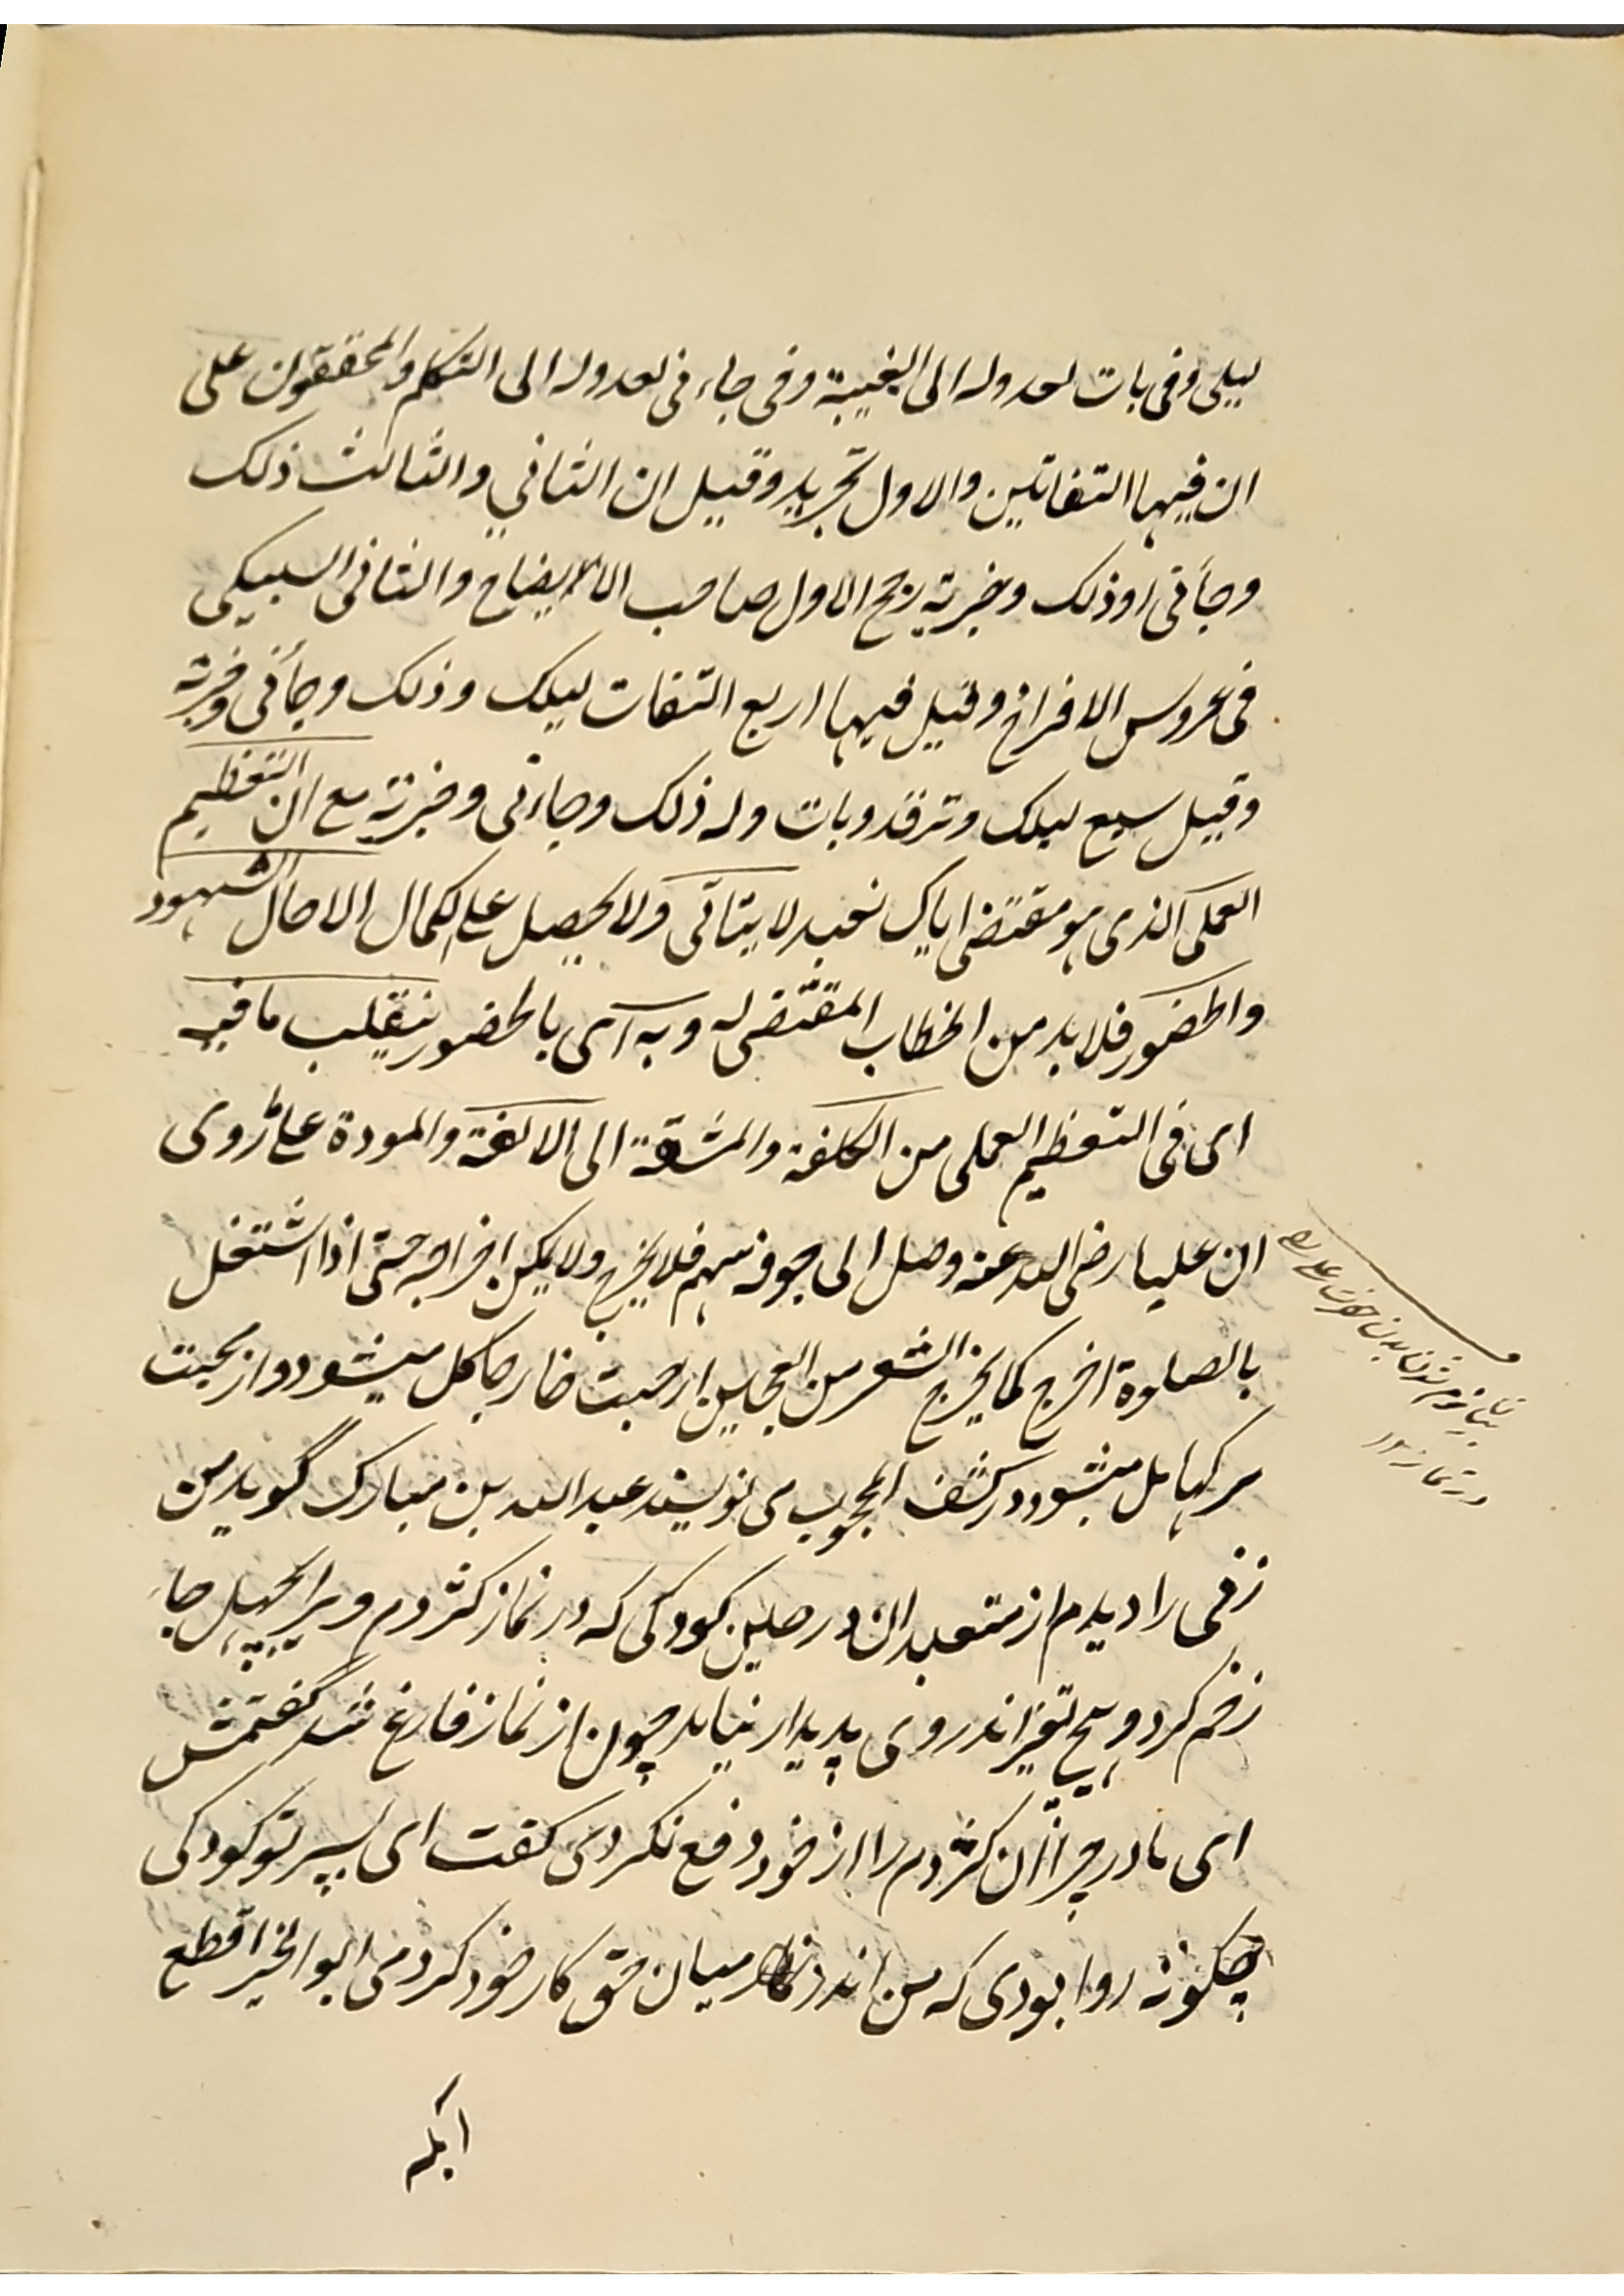 ليلى وفى بات لعدوله الى الغيبة وفى جاءنى لعدوله الى التكلم والمحققون على
ان فيها التفاتين والاول تجريد وقيل ان الثاني والثالث ذلك
وجأنى او ذلك وخبرته رجح الاول صاحب الايضاح والثانى السبكى
فى عروس الافراخ وقيل فيها اربع التفات ليلك وذلك وجأنى وخبرته
وقيل سبع ليلك وترقد وبات وله ذلك وجاءنى وخبرته مع ان التعظيم
العملى الذى هو مقتضى اياك نعبد لا يتاتى ولا يحصل على الكمال الا حال الشهود
والحضور فلا بد من الخطاب المقتضى له وبه اى بالحضور ينقلب ما فيه
اى فى التعظيم العملى من الكلفة والمشقة الى الالفة والمودة على ما روى
ان عليا رضى الله عنه وصل الى جوفه سهم فلا يخرج ولا يمكن اخراجه حتى اذا اشتغل
بالصلوة اخرج كما يخرج الشعر من العجين از محبت خارها كل ميشود و از محبت
سركها مل ميشود در كشف المحجوب مى نويسد عبد الله بن مبارك گويد من
زنى را ديدم از متعبدان در حين كودكى كه در نماز كژدم ويرا چهل جا
زخم كرد و هيچ تغير اندر وى پديدار نيامد چون از نماز فارغ شد گفتمش
اى مادر چرا آن كژدم را از خود دفع نكردى كفت اى پسر تو كودكى
چكونه روا بودى كه من اندر ميان حق كار خود كردمى ابو الخير اقطع
بدن حضرت على
در نماز